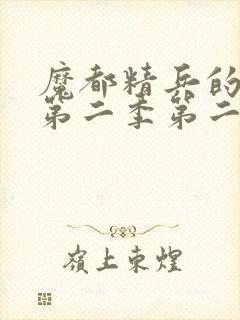 魔都精兵的
第二季第二
嶺上東煌